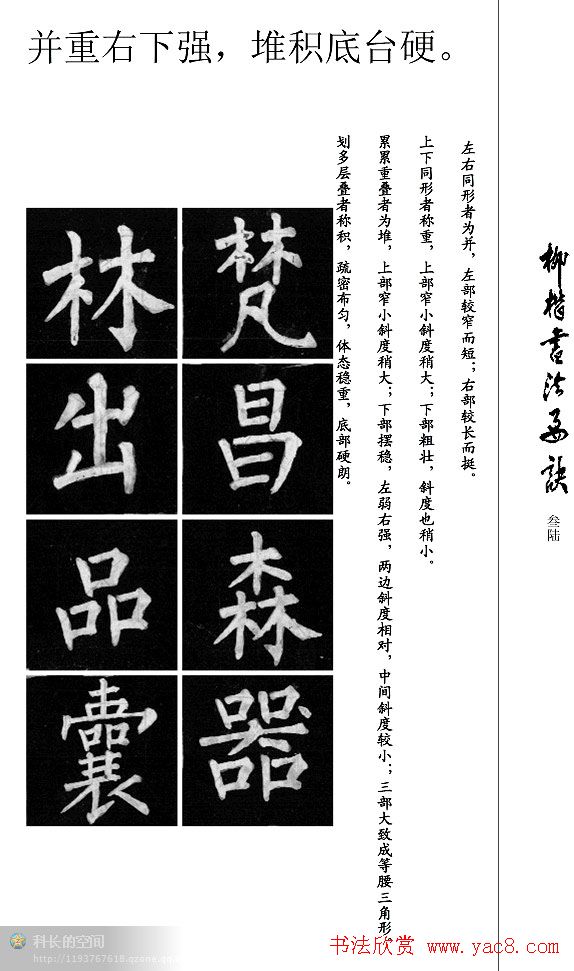 并重右下强，堆积底台硬。
左右同形者为并，左部较窄而短；右部较长而挺。
上下同形者称重，上部窄小斜度稍大；下部粗壮，斜度也稍小。
累累重叠者为堆，上部窄小斜度稍大；下部摆稳，左弱右强，两边斜度相对，中间斜度较小；三部大致成等腰三角形。
划多层叠者称积，疏密布匀，体态稳重，底部硬朗。
梵 林
昌 出
森 品
器 囊
柳楷书法要诀
叁陆
科长的空间
http://1193767618.qzone.qq.
书法欣赏 www.yac8.com